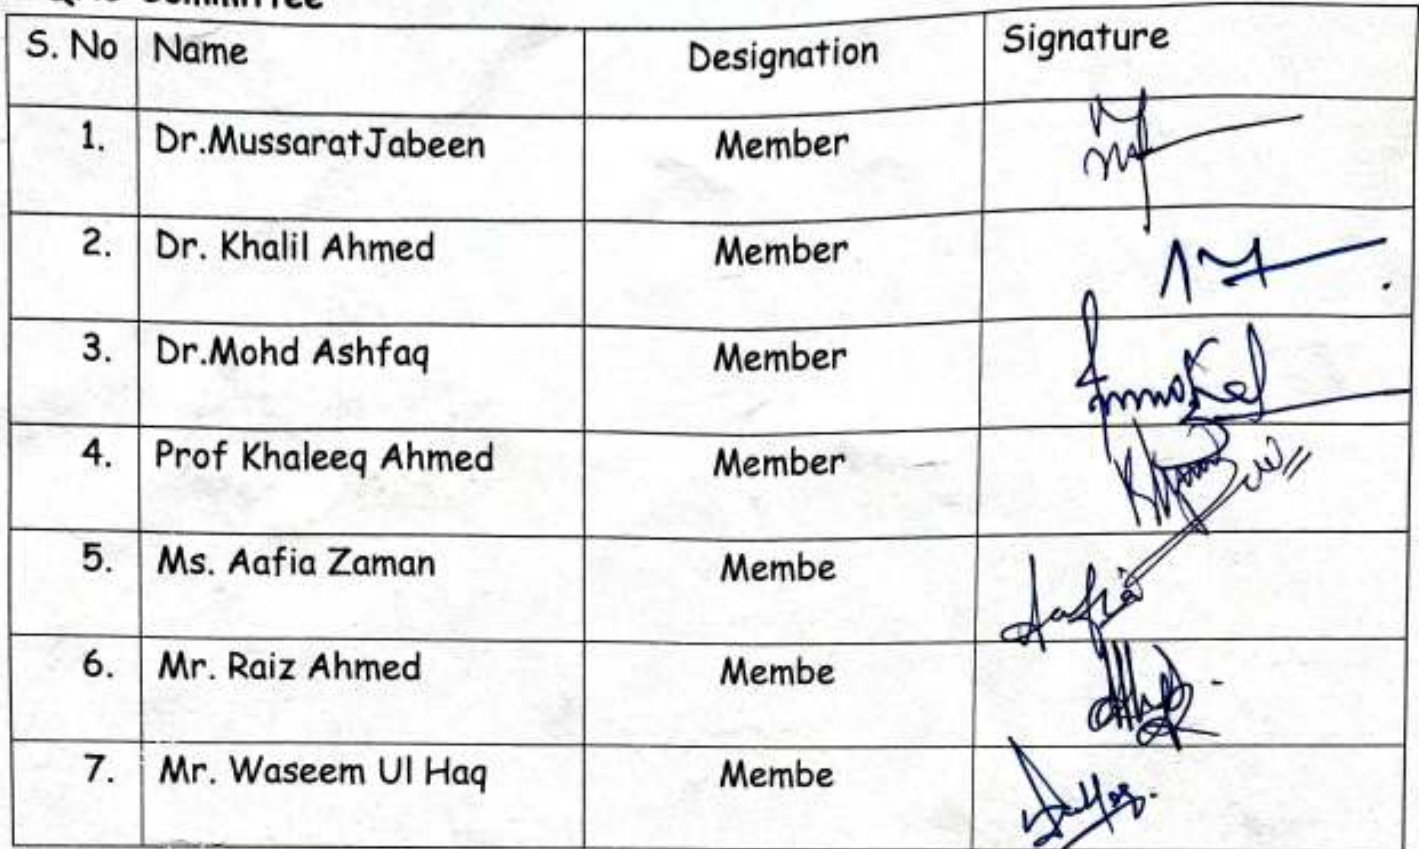 Committee
S. No Name Designation Signature
1. Dr.MussaratJabeen Member
2. Dr. Khalil Ahmed Member
3. Dr.Mohd Ashfaq Member
4. Prof Khaleeq Ahmed Member
5. Ms. Aafia Zaman Membe Aafia
6. Mr. Raiz Ahmed Membe
7. Mr. Waseem Ul Haq Membe